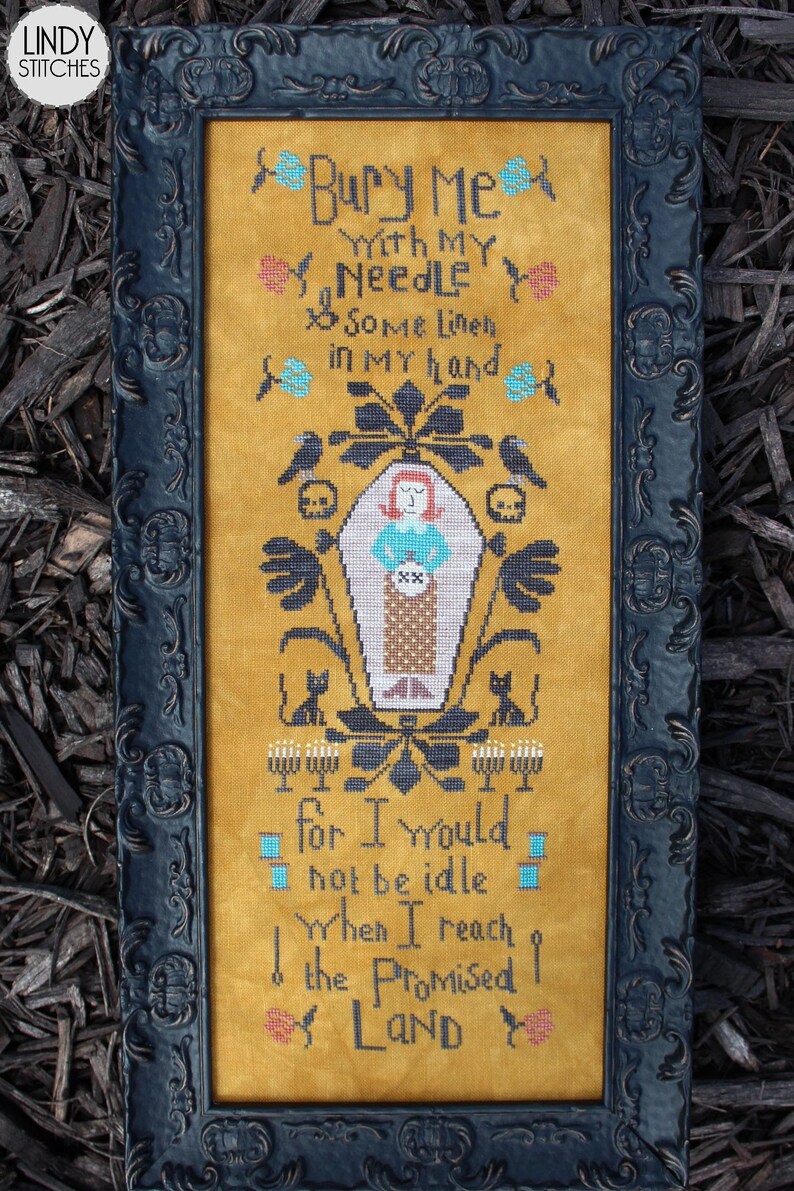 LINDY
STITCHES
Bury Me
with My
Needle
& Some linen
in My hand
for I would
not be idle
when I reach
the Promised
Land